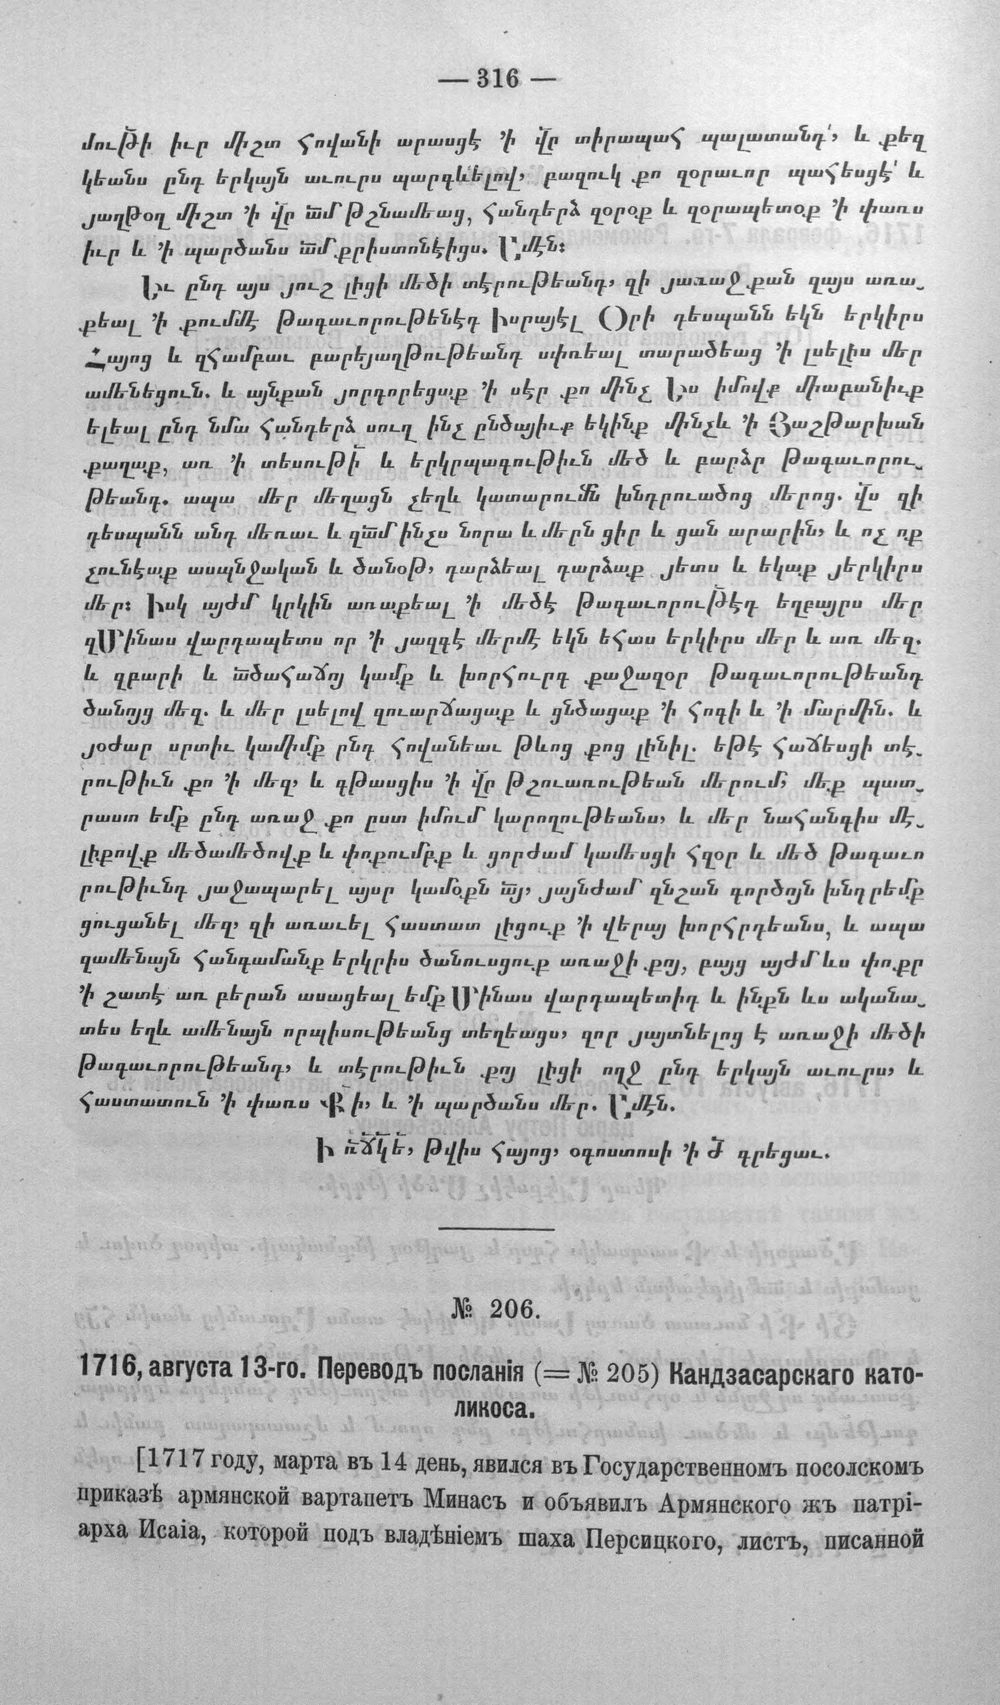 — 316 —
մութի իւր միշտ հովանի արասցէ ՚ի վր տիրապահ պալատանդ՝, և քեզ
կեանս ընդ երկայն աւուրս պարգևելով, բազուկ քո զօրաւոր պահեսցէ՛ և
յաղթօղ միշտ ՚ի վր ամ թշնամեաց, հանդերձ զօրօք և զօրապետօք ՚ի փառս
իւր և ՚ի պարծանս ամ քրիստոնէիցս. Ամէն։
Եւ ընդ այս յուշ լիցի մեծի տէրութեանդ, զի յառաջ քան զայս առա-
քեալ ՚ի քումմէ թագաւորութենէդ Իսրայէլ Օրի դեսպանն եկն երկիրս
Հայոց և զհամբաւ բարեյաղթութեանդ սփռեալ տարածեաց ՚ի լսելիս մեր
ամենեցուն. և այնքան յորդորեցաք ՚ի սէր քո մինչ Ես իմովք միաբանիւք
ելեալ ընդ նմա հանդերձ սուղ ինչ ընծայիւք եկինք մինչև ՚ի Յաշթարխան
քաղաք, առ ՚ի տեսութի և երկրպագութիւն մեծ և բարձր թագաւորու-
թեանդ. ապա մեր մեղացն չեղև կատարումն խնդրուածոց մերոց. վս զի
դեսպանն անդ մեռաւ և զամ ինչս նորա և մերն ցիր և ցան արարին, և ոչ ոք
չունէաք ասպնջական և ծանօթ, դարձեալ դարձաք յետս և եկաք յերկիրս
մեր։ Իսկ այժմ կրկին առաքեալ ՚ի մեծէ թագաւորութէդ եղբայրս մեր
զՄինաս վարդապետս որ ՚ի յազգէ մերմէ եկն եհաս երկիրս մեր և առ մեզ.
և զբարի և ածահաճոյ կամք և խորհուրդ քաջազօր թագաւորութեանդ
ծանոյց մեզ. և մեր լսելով զուարճացաք և ցնծացաք ՚ի հոգի և ՚ի մարմին. և
յօժար սրտիւ կամիմք ընդ հովանեաւ թևոց քոց լինիլ. եթէ հաճեսցի տէ-
րութիւն քո ՚ի մեզ, և գթասցիս ՚ի վր թշուառութեան մերում, մեք պատ-
րաստ եմք ընդ առաջ քո ըստ իմում կարողութեանս, և մեր նահանգիս մէ-
լիքովք մեծամեծովք և փոքումբք և ցորժամ կամեսցի հզօր և մեծ թագաւո
րութիւնդ յաջապարել այսր կամօքն այ, յայնժամ զնշան գործոյն խնդրեմք
ցուցանել մեզ, զի առաւել հաստատ լիցուք ՚ի վերայ խորհրդեանս, և ապա
զամենայն հանգամանք երկրիս ծանուսցուք առաջի քոյ, բայց այժմ ևս փոքր
՚ի շատէ առ բերան ասացեալ եմք Մինաս վարդապետիդ և ինքն ևս ականա-
տես եղև ամենայն որպիսութեանց տեղեացս, զոր յայտնելոց է առաջի մեծի
թագաւորութեանդ, և տէրութիւն քոյ լիցի ողջ ընդ երկայն աւուրս, և
հաստատուն ՚ի փառս Քի, և ՚ի պարծանս մեր. Ամէն.
Ի ռճկե, թվիս հայոց, օգոստոսի ՚ի ժ գրեցաւ.
№ 206.
1716, августа 13-го. Переводъ посланія (= № 205) Кандзасарскаго като-
ликоса.
[1717 году, марта въ 14 день, явился въ Государственномъ посолскомъ
приказѣ армянской вартапетъ Минасъ и объявилъ Армянского жъ патрі-
арха Исаіа, которой подъ владѣніемъ шаха Персицкого, листъ, писанной